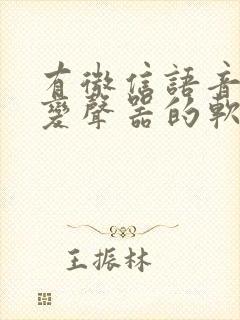 有微信語音
變聲器的軟
王振林